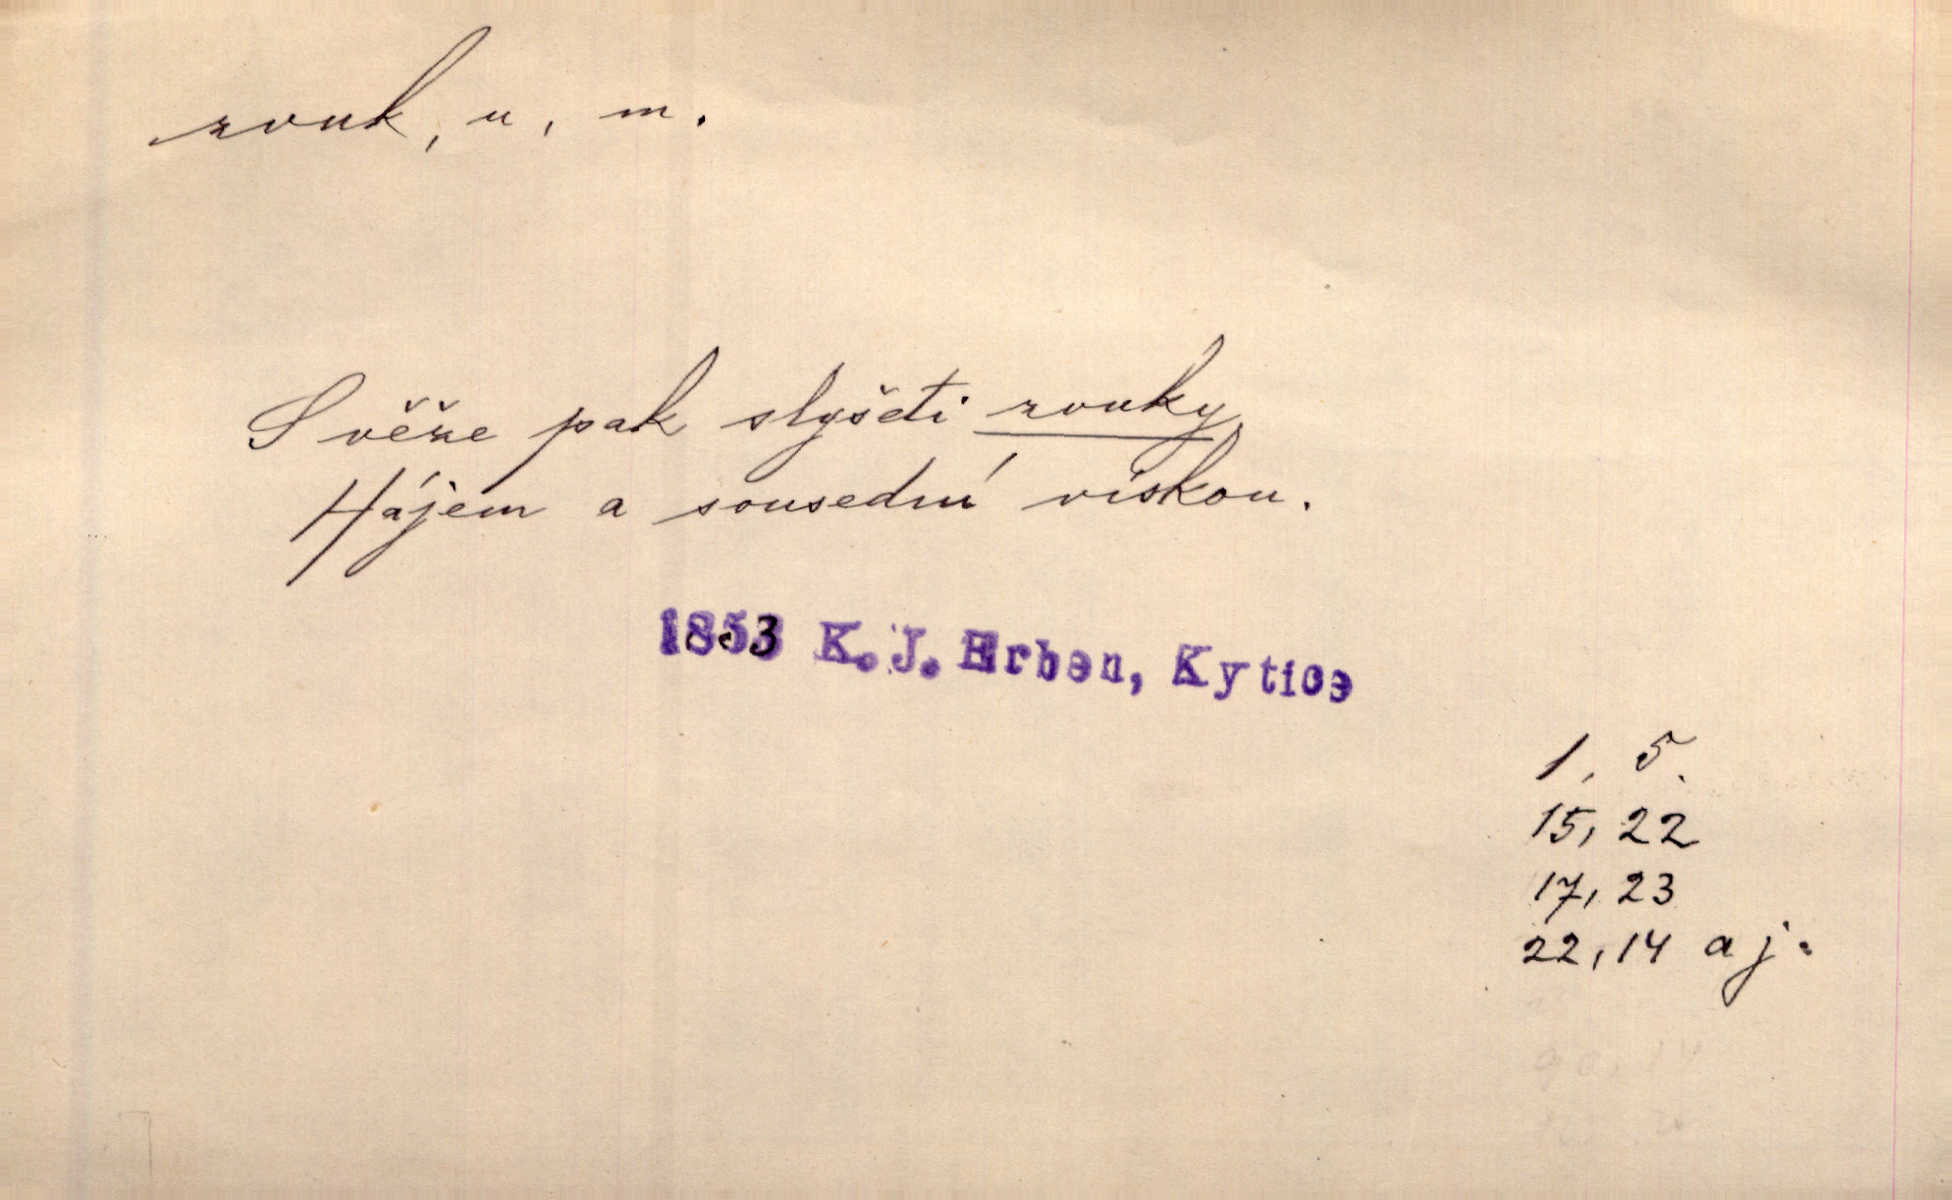 zvuk, u, m.
S věže pak slyšeti zvuky
Hájem a sousední vískou.
1853 K. J. Erben, Kytice
1, 5.
15, 22
17, 23
22, 14 a j.